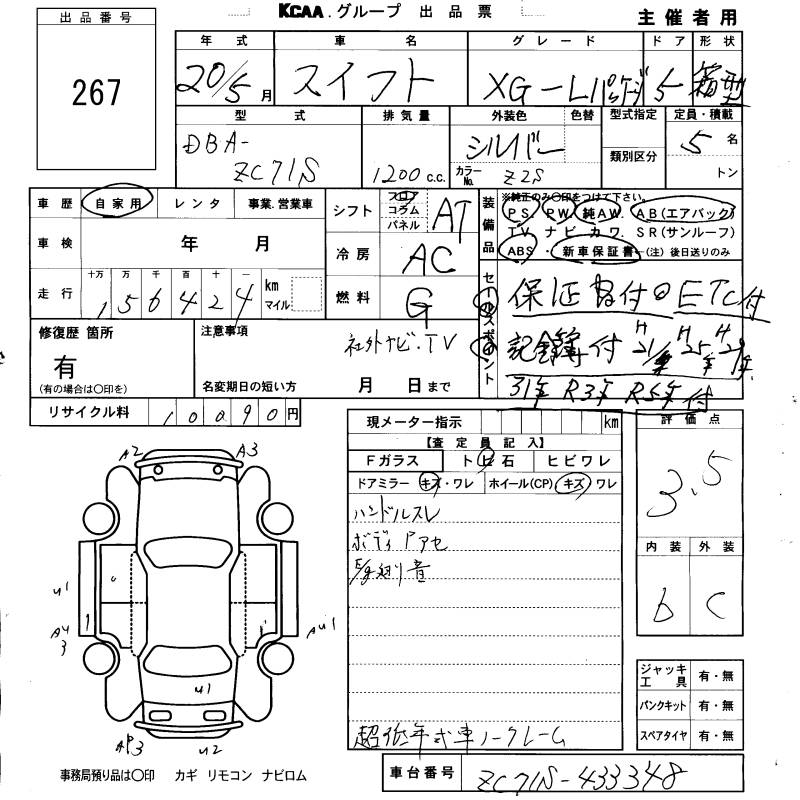 KCAA.グループ 出品票
主催者用
出品番号
267
年式 車名 グレード ドア 形状
20/5月 スイフト XG-Lパッケージ 5 箱型
型式 排気量 外装色 色替 型式指定 定員・積載
DBA-
ZC71S
1200c.c.
シルバー
カラーNo. Z2S
類別区分
5名
トン
車歴 自家用 レンタ 事業.営業車
車検 年 月
走行 十万 万 千 百 十 一
156424 km マイル
シフト フロア コラム パネル AT
冷房 AC
燃料 G
装備品
※純正のみ〇印をつけて下さい。
PS. PW. 純AW. AB(エアバック)
TV ナビ カワ. SR(サンルーフ)
ABS ・ 新車保証書 ←(注)後日送りのみ
セールスポイント
保証書付 ETC付
記録簿付 H21年 H25年 H29年
31年 R3年 R5年付
修復歴 箇所
有
(有の場合は〇印を)
注意事項
社外ナビ.TV
名変期日の短い方 月 日まで
リサイクル料 10090円
現メーター指示 km
【査定員記入】
Fガラス トビ石 ヒビワレ
ドアミラー キズ・ワレ ホイール(CP) キズ ワレ
ハンドルスレ
ボディドアセ
E/g廻り音
超低年式車ノークレーム
評価点
3.5
内装 外装
b C
ジャッキ工具 有・無
パンクキット 有・無
スペアタイヤ 有・無
車台番号 ZC71S-433348
A2 A3
U1
A4
3
AU1
U1
AP3 U2
事務局預り品は〇印 カギ リモコン ナビロム